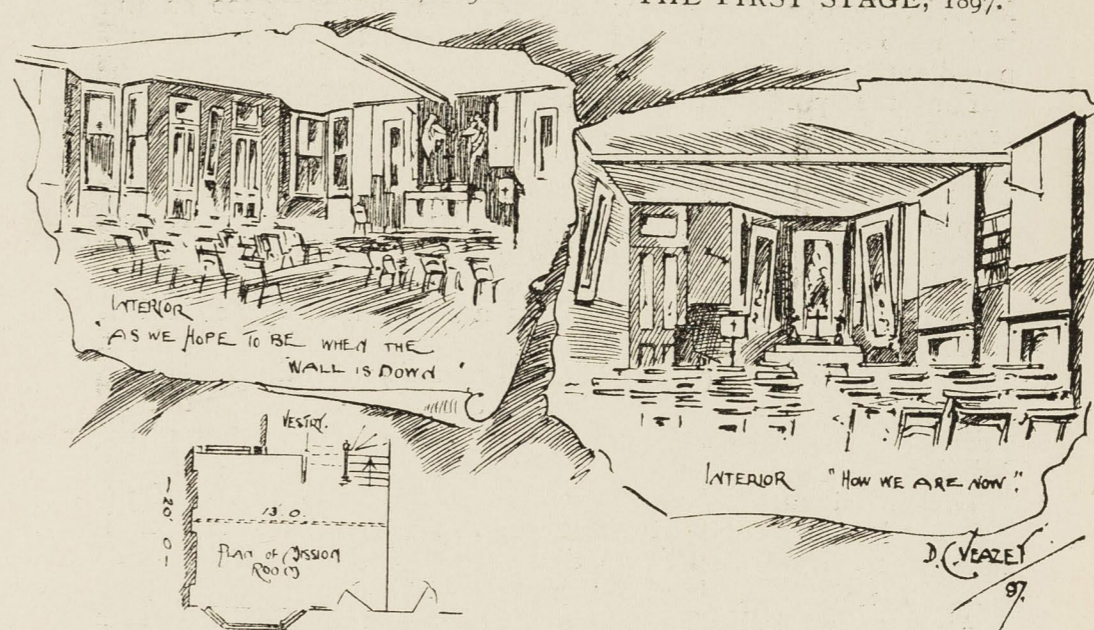 THE FIRST STAGE, 1897.
INTERIOR
"AS WE HOPE TO BE WHEN THE
WALL IS DOWN"
INTERIOR "HOW WE ARE NOW".
VESTRY.
13' 0.
20' 0
PLAN OF MISSION
ROOM
D.C. VEAZEY
97.